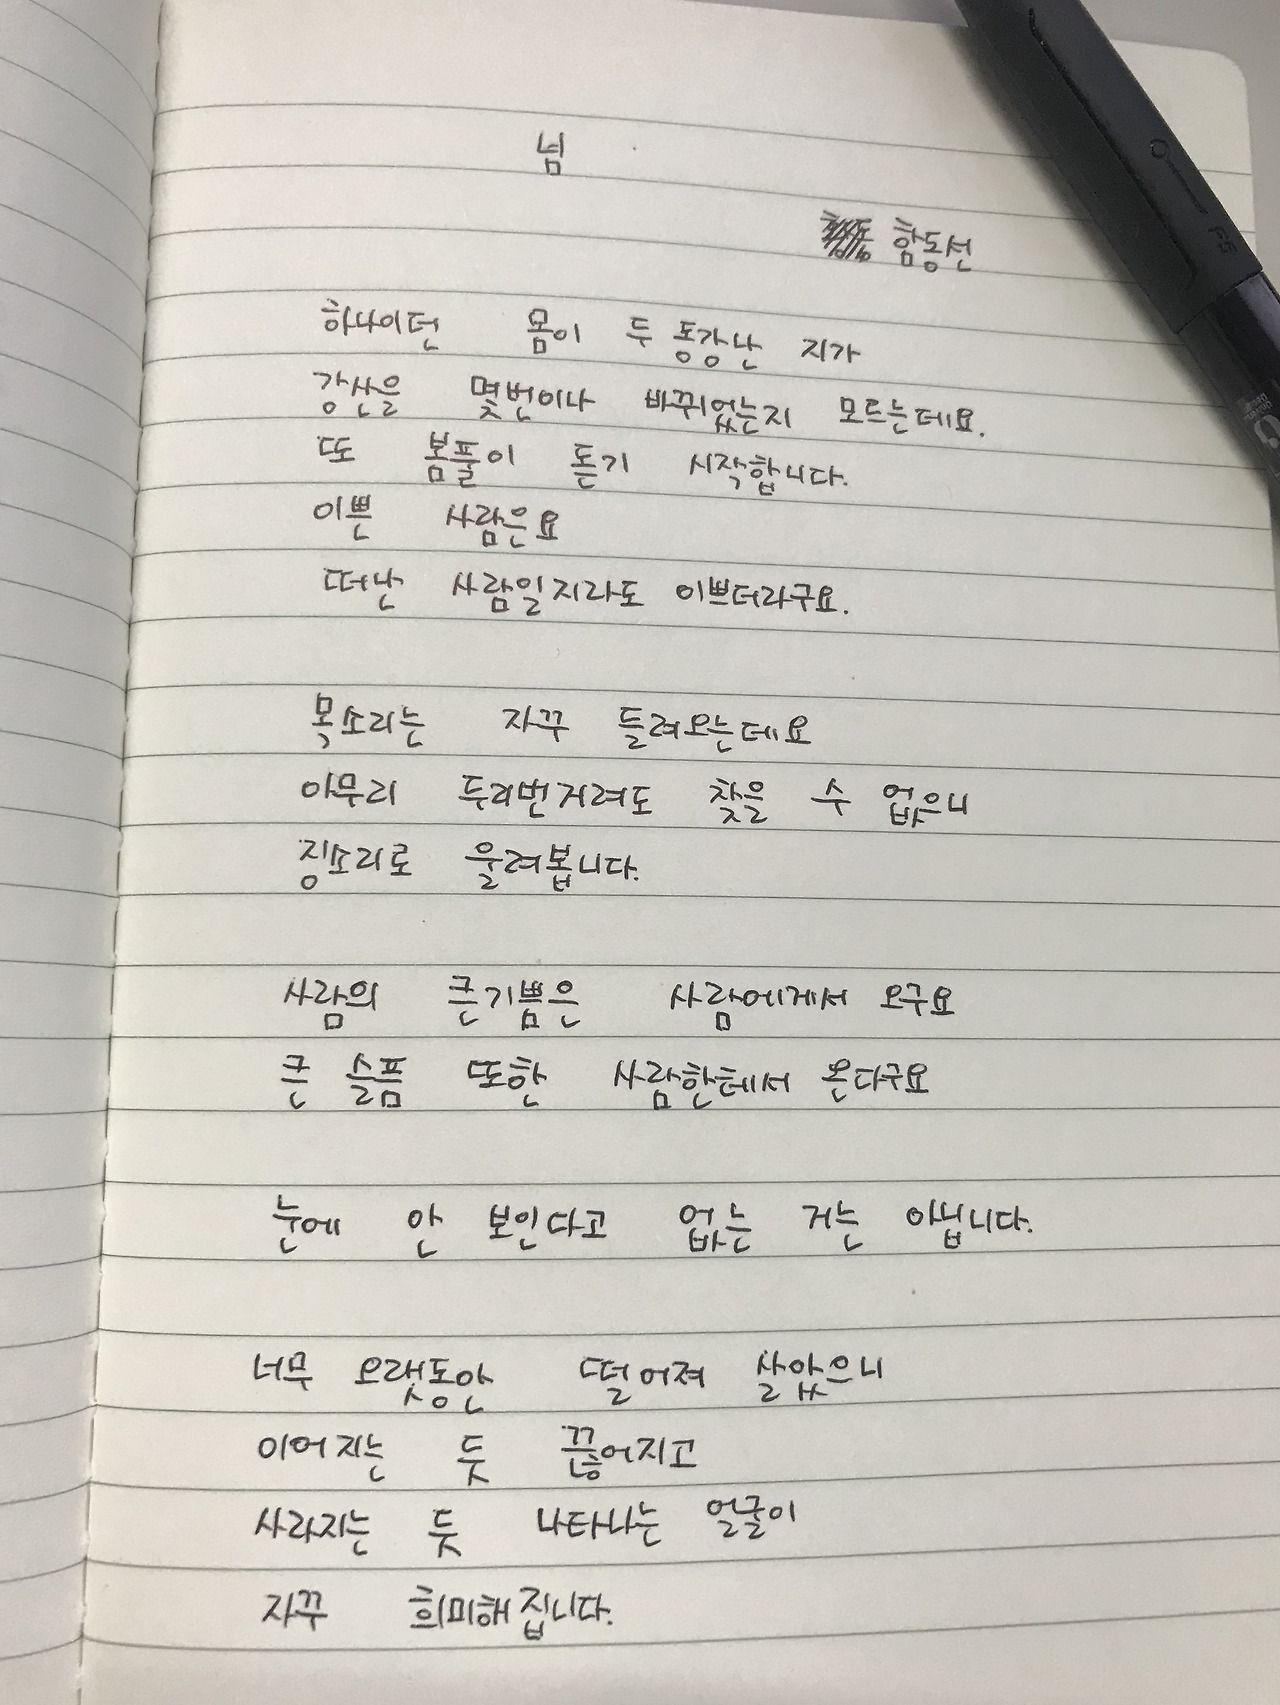 넘
함동선
하나이던 몸이 두 동강난 지가
강산은 몇번이나 바뀌었는지 모르는데요.
또 봄풀이 돋기 시작합니다.
이쁜 사람은요
떠난 사람일지라도 이쁘더라구요.
목소리는 자꾸 들려오는데요
아무리 두리번거려도 찾을 수 없으니
징소리로 울려봅니다.
사람의 큰기쁨은 사람에게서 오구요
큰 슬픔 또한 사람한테서 온다구요
눈에 안 보인다고 없는 거는 아닙니다.
너무 오랫동안 떨어져 살았으니
이어지는 듯 끊어지고
사라지는 듯 나타나는 얼굴이
자꾸 희미해집니다.